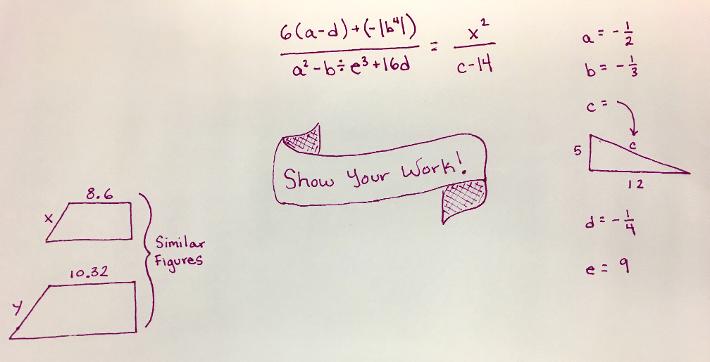 6(a-d)+(-|b⁴|) / a²-b÷e³+16d = x² / c-14
a = -1/2
b = -1/3
c =
c
5
12
d = -1/4
e = 9
Show Your Work!
8.6
x
10.32
y
Similar
Figures